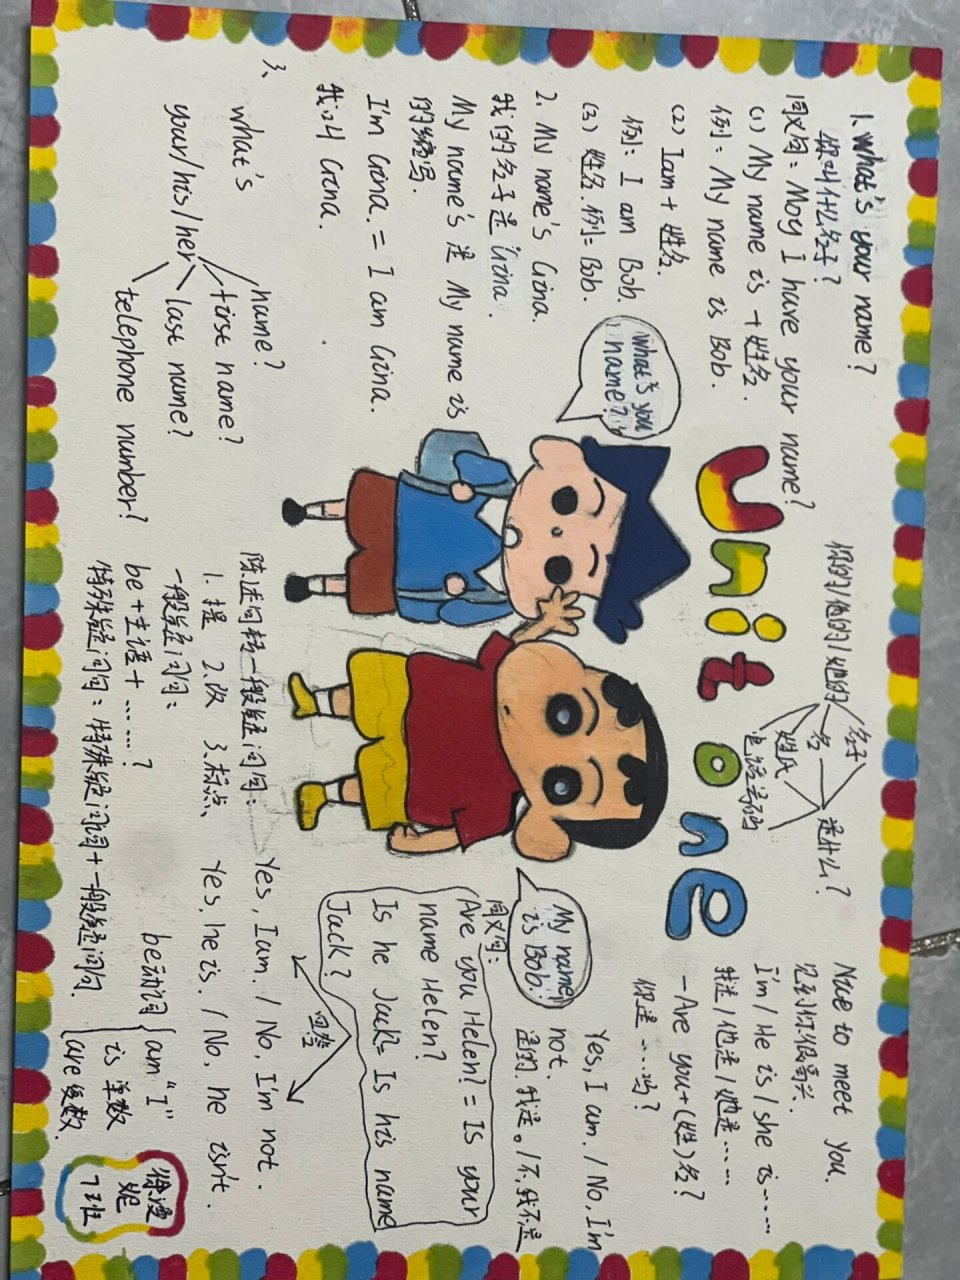 Unit one
1. What's your name?
你叫什么名字?
同义句: May I have your name?
(1) My name is + 姓名.
例: My name is Bob.
(2) I am + 姓名.
例: I am Bob.
(3) 姓名. 例: Bob.
2. My name's Gina.
我的名字是 Gina.
My name's 是 My name is
的缩写.
I'm Gina. = I am Gina.
我叫 Gina.
3、
what's
your/his/her
name?
first name?
last name?
telephone number?
what's you
name?
My name
is Bob.
你的/他的/她的
名字
名
姓氏
电话号码
是什么?
Nice to meet you.
见到你很高兴.
I'm / He is / she is ……
我是 / 他是 / 她是……
— Are you + (姓) 名?
你是……吗?
Yes, I am. / No, I'm
not.
是的, 我是。/ 不, 我不是
同义句:
Are you Helen? = Is your
name Helen?
Is he Jack = Is his name
Jack?
回答
陈述句转一般疑问句:
1. 提 2. 改 3. 标点、
一般疑问句:
be + 主语 + ……?
特殊疑问句: 特殊疑问词 + 一般疑问句.
Yes, I am. / No, I'm not.
Yes, he is. / No, he isn't.
be动词
am "I"
is 单数
are 复数.
7班